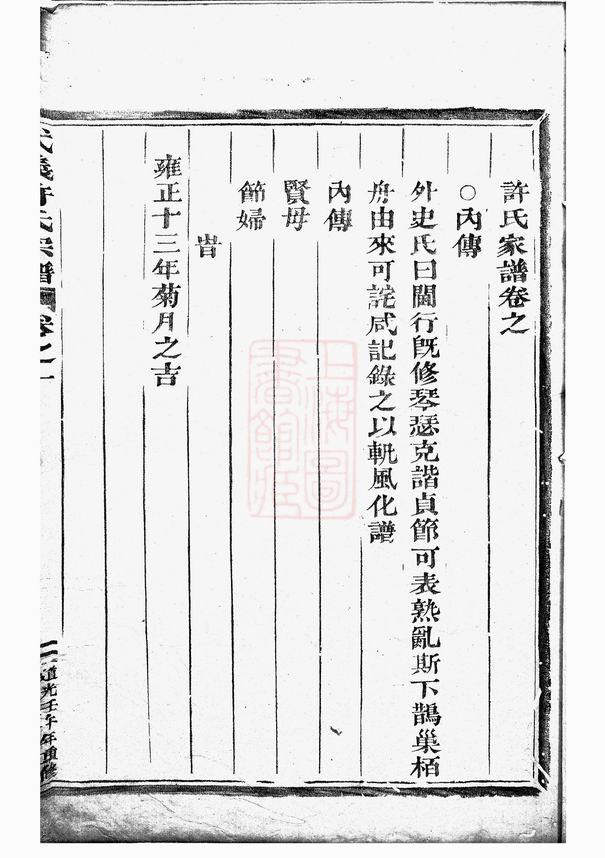 許氏家譜卷之
○內傳
外史氏曰閫行旣修琴瑟克諧貞節可表熟亂斯下鵲巢栢
舟由來可詫咸記錄之以軏風化譜
內傳
賢毋
節婦
旹
雍正十三年菊月之吉
武義許氏宗譜 卷之一
道光壬午年重修
上海圖書館藏